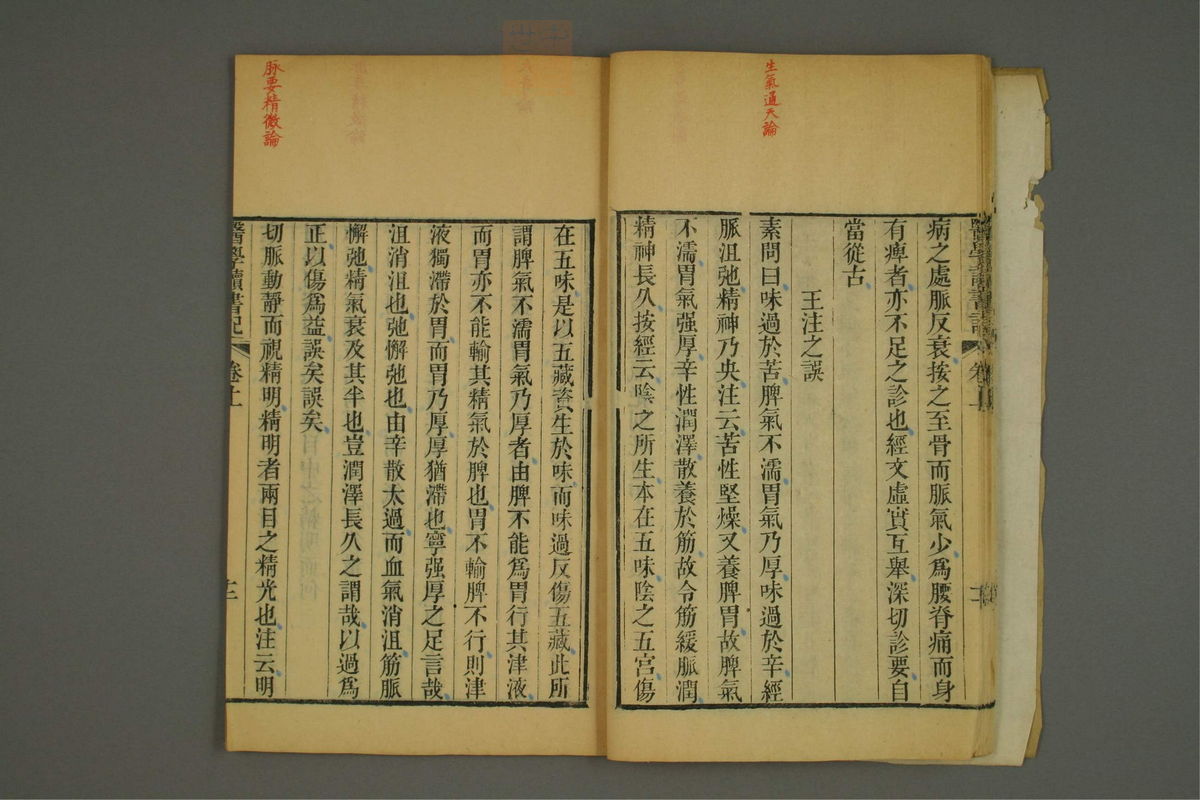 生氣通天論
病之處脈反衰按之至骨而脈氣少爲腰脊痛而身
有痺者亦不足之診也經文虛實互舉深切診要自
當從古
王注之誤
素問曰味過於苦脾氣不濡胃氣乃厚味過於辛經
脈沮弛精神乃央注云苦性堅燥又養脾胃故脾氣
不濡胃氣强厚辛性潤澤散養於筋故令筋緩脈潤
精神長久按經云陰之所生本在五味陰之五宮傷
脉要精微論
在五味是以五藏資生於味而味過反傷五藏此所
謂脾氣不濡胃氣乃厚者由脾不能爲胃行其津液
而胃亦不能輸其精氣於脾也胃不輸脾不行則津
液獨滯於胃而胃乃厚厚猶滯也寧强厚之足言哉
沮消沮也弛懈弛也由辛散太過而血氣消沮筋脈
懈弛精氣衰及其半也豈潤澤長久之謂哉以過爲
正以傷爲益誤矣誤矣
切脈動靜而視精明精明者兩目之精光也注云明
醫學讀書記
卷上
二